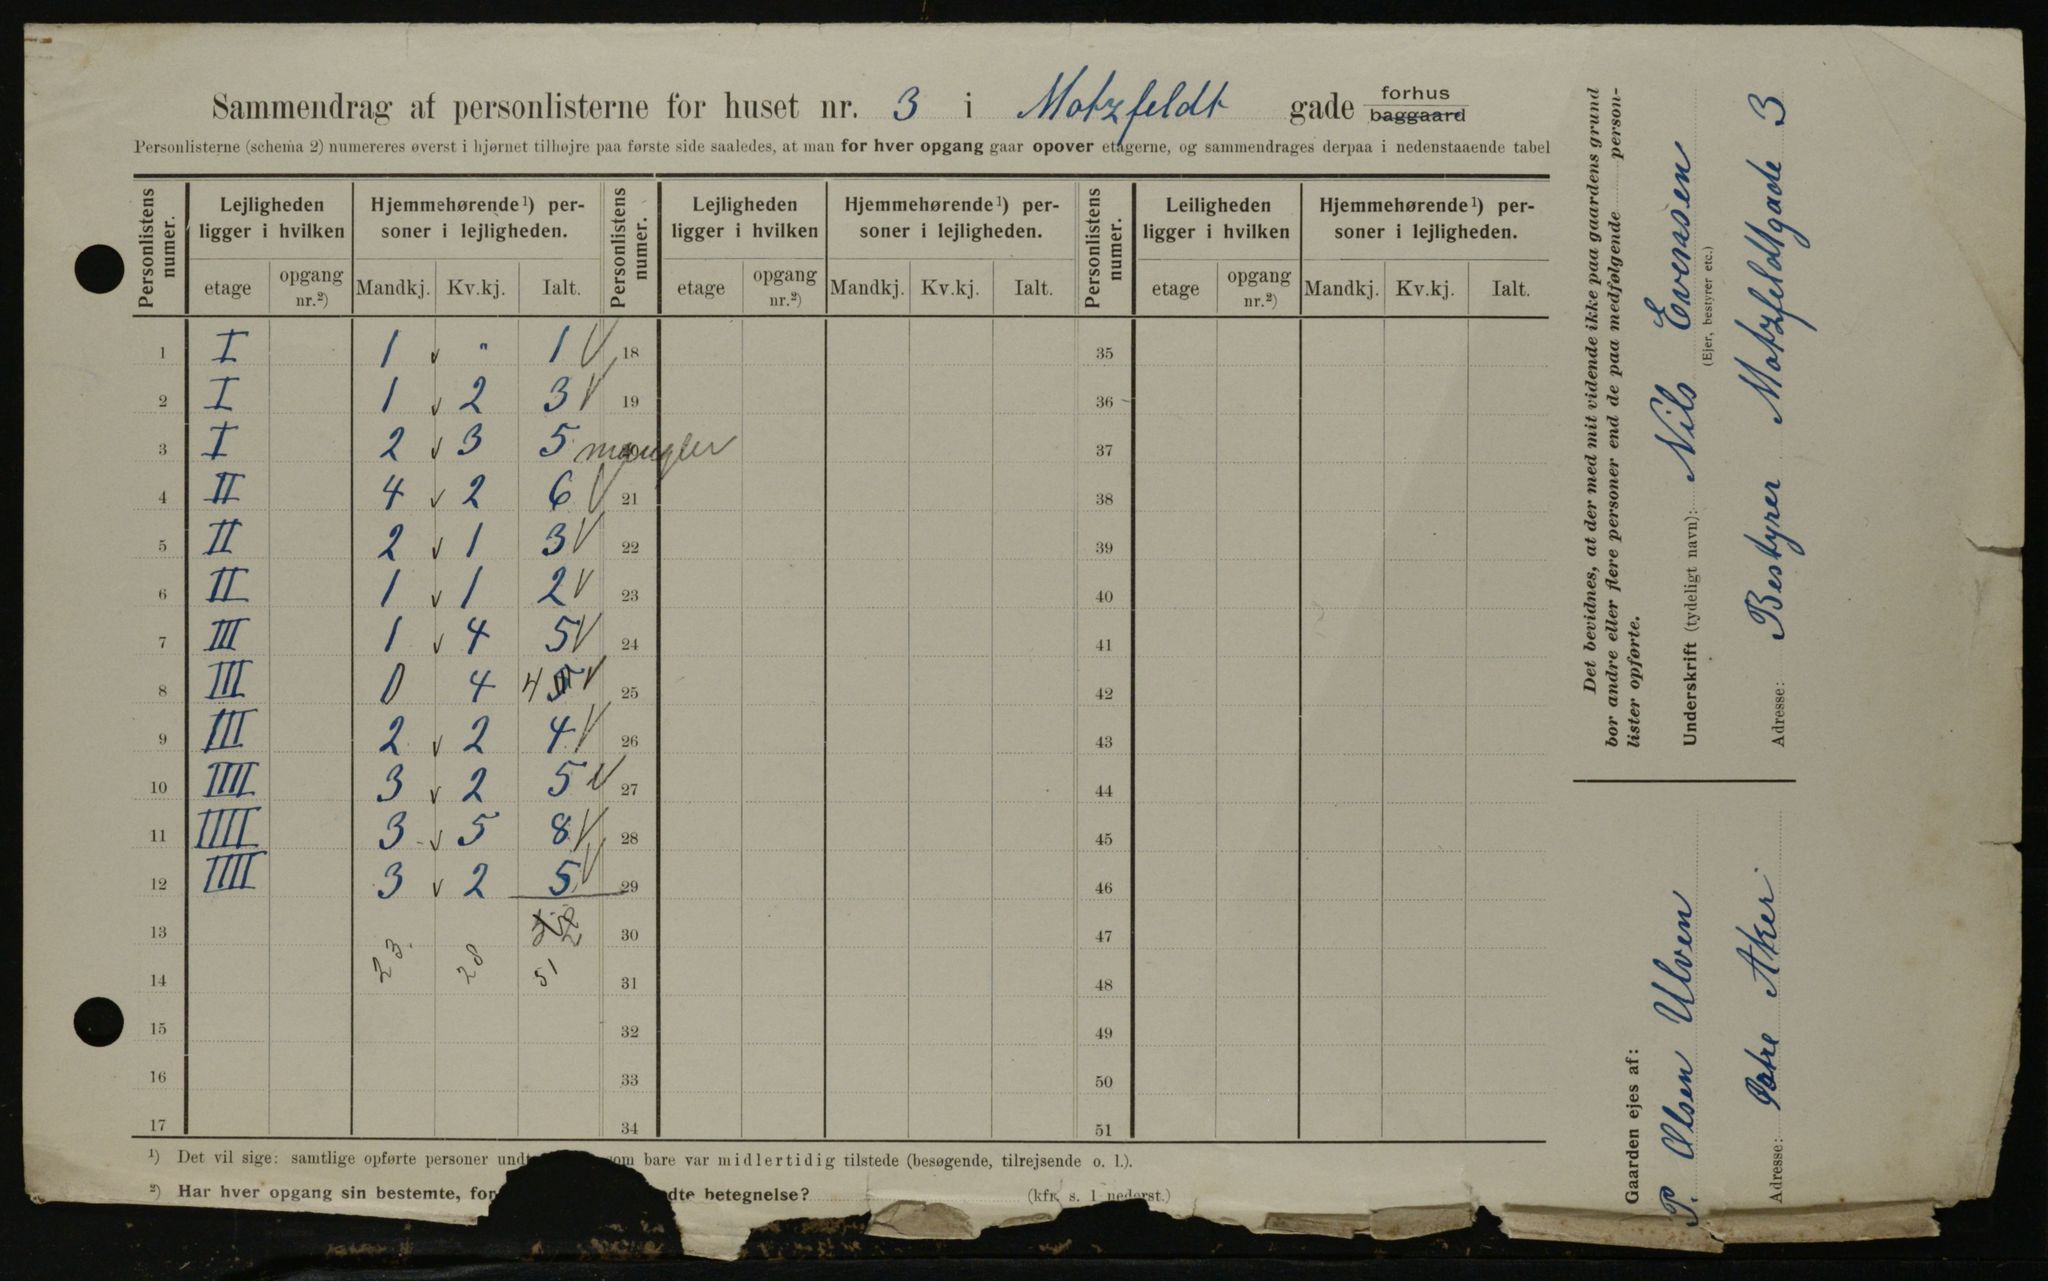 Sammendrag af personlisterne for huset nr. 3 i Motzfeldt gade forhus baggaard
Personlisterne (schema 2) numereres øverst i hjørnet tilhøjre paa første side saaledes, at man for hver opgang gaar opover etagerne, og sammendrages derpaa i nedenstaaende tabel
Personlistens numer. Lejligheden ligger i hvilken Hjemmehørende¹) personer i lejligheden. Personlistens numer. Lejligheden ligger i hvilken Hjemmehørende¹) personer i lejligheden. Personlistens numer. Leiligheden ligger i hvilken Hjemmehørende¹) personer i lejligheden.
etage opgang nr.²) Mandkj. Kv.kj. Ialt. etage opgang nr.²) Mandkj. Kv.kj. Ialt. etage opgang nr.²) Mandkj. Kv.kj. Ialt.
1 I 1 v " 1 V 18 35
2 I 1 v 2 3 V 19 36
3 I 2 v 3 5 mangler 37
4 II 4 v 2 6 V 21 38
5 II 2 v 1 3 V 22 39
6 II 1 v 1 2 V 23 40
7 III 1 v 4 5 V 24 41
8 III 0 4 4 5 V 25 42
9 III 2 v 2 4 V 26 43
10 IIII 3 v 2 5 V 27 44
11 IIII 3 v 5 8 V 28 45
12 IIII 3 v 2 5 V 29 46
13 30 47
14 23 28 51 31 48
15 32 49
16 33 50
17 34 51
¹) Det vil sige: samtlige opførte personer undt om bare var midlertidig tilstede (besøgende, tilrejsende o. l.).
²) Har hver opgang sin bestemte, for dte betegnelse? (kfr. s. 1 nederst.)
Det bevidnes, at der med mit vidende ikke paa gaardens grund
bor andre eller flere personer end de paa medfølgende person-
lister opførte.
Underskrift (tydeligt navn): Nils Evensen
(Ejer, bestyrer etc.)
Adresse: Bestyrer Motzfeldtgade 3
Gaarden ejes af:
P. Olsen Ulven
Adresse: Østre Aker